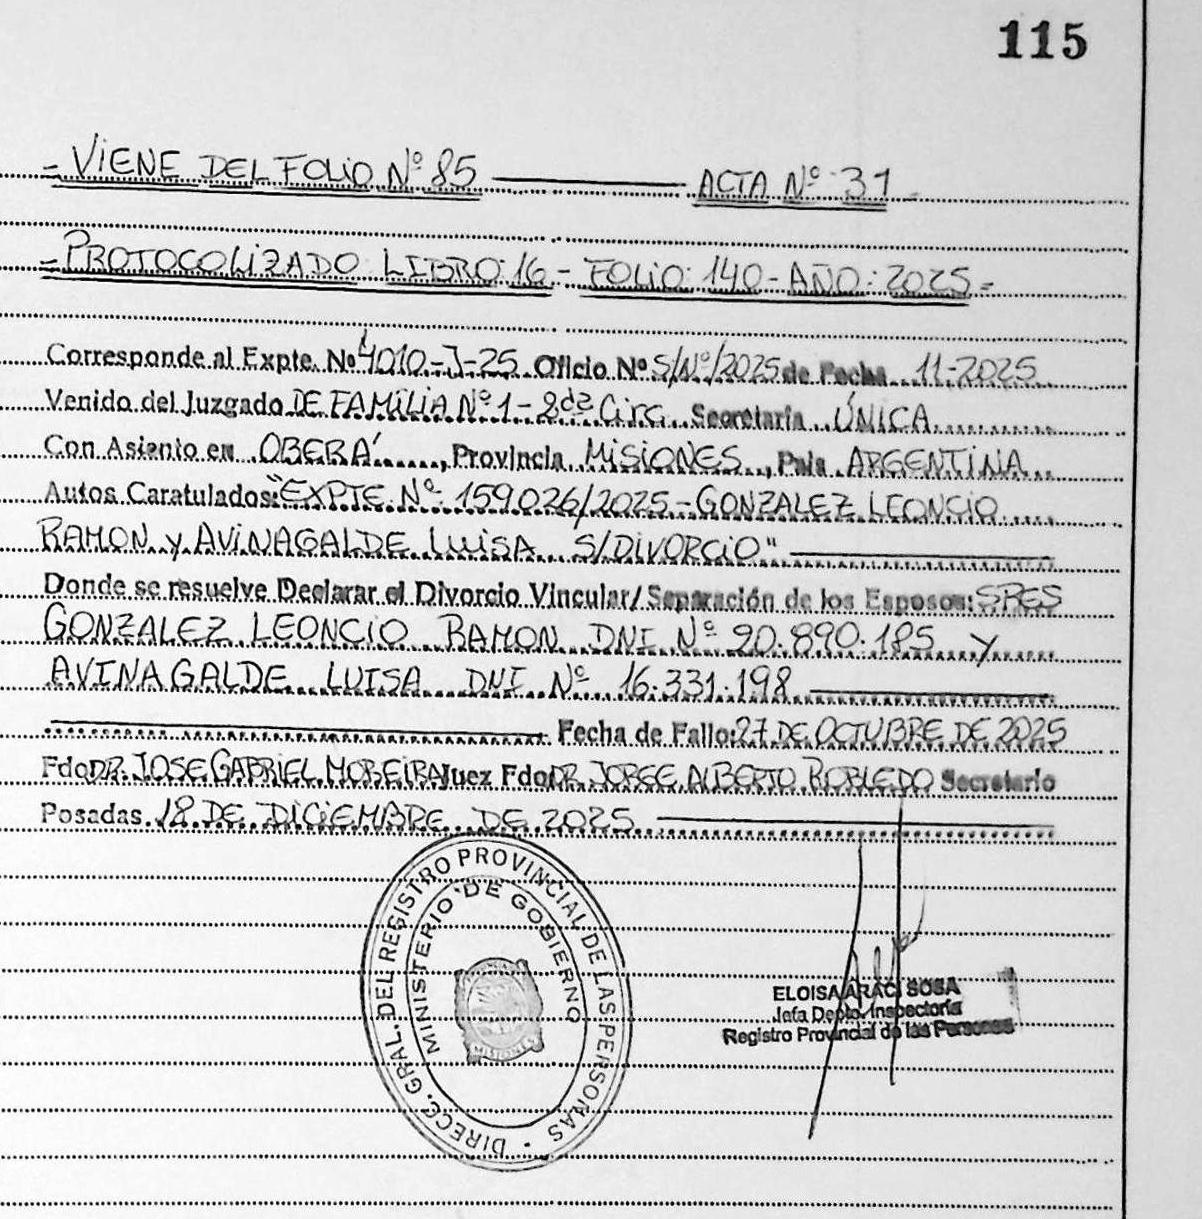 115
- VIENE DEL FOLIO Nº 85 ——— ACTA Nº 31 -
- PROTOCOLIZADO LIBRO: 16 - FOLIO: 140 - AÑO: 2025 -
Corresponde al Expte. Nº 4010-J-25 Oficio Nº S/Nº/2025 de Fecha 11-2025
Venido del Juzgado DE FAMILIA Nº 1 - 2da Circ. Secretaría ÚNICA
Con Asiento en OBERÁ, Provincia MISIONES, País ARGENTINA
Autos Caratulados: "EXPTE. Nº 159026/2025 - GONZALEZ LEONCIO
RAMON y AVINAGALDE LUISA S/DIVORCIO"
Donde se resuelve Declarar el Divorcio Vincular/Separación de los Esposos: SRES
GONZALEZ LEONCIO RAMON DNI Nº 20.890.185 y
AVINAGALDE LUISA DNI Nº 16.331.198
Fecha de Fallo: 27 DE OCTUBRE DE 2025
Fdo DR. JOSE GABRIEL MOREIRA Juez Fdo DR. JORGE ALBERTO ROBLEDO Secretario
Posadas 18 DE DICIEMBRE DE 2025
DIRECC. GRAL. DEL REGISTRO PROVINCIAL DE LAS PERSONAS -
MINISTERIO DE GOBIERNO
MISIONES
ELOISA ARACI SOSA
Jefa Depto. Inspectoría
Registro Provincial de las Personas